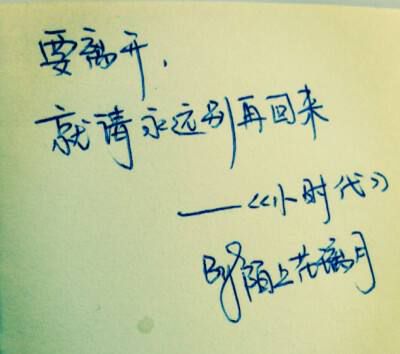 要离开，
就请永远别再回来
——《小时代》
By陌上花离月